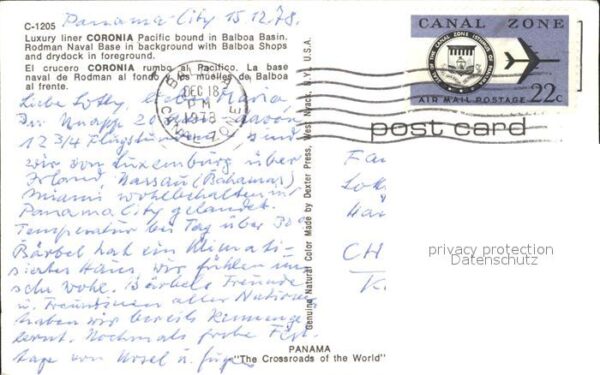 Panama-City 15.12.78.
C-1205
Luxury liner CORONIA Pacific bound in Balboa Basin.
Rodman Naval Base in background with Balboa Shops
and drydock in foreground.
El crucero CORONIA rumbo al Pacífico. La base
naval de Rodman al fondo los muelles de Balboa
al frente.
Liebe Lotty, liebe Maria,
In knapp 20 davon
12 3/4 Flugstunden, sind
wir von Luxemburg über
Irland, Nassau (Bahamas)
Miami wohlbehalten in
Panama City gelandet.
Temperatur bei Tag über 30°
Bärbel hat ein klimati-
siertes Haus, wir fühlen uns
sehr wohl. Bärbels Freunde
u. Freundinnen aller Nationen
haben wir bereits kennenge-
lernt. Nochmals frohe Fest-
tage von Rosel u. Jürgen
CANAL ZONE
AIR MAIL POSTAGE 22c
DEC 18
PM
1978
post card
Genuine Natural Color Made by Dexter Press, West Nyack, N.Y. U.S.A.
Fa
Lo
Ha
CH
privacy protection
Datenschutz
PANAMA
"The Crossroads of the World"